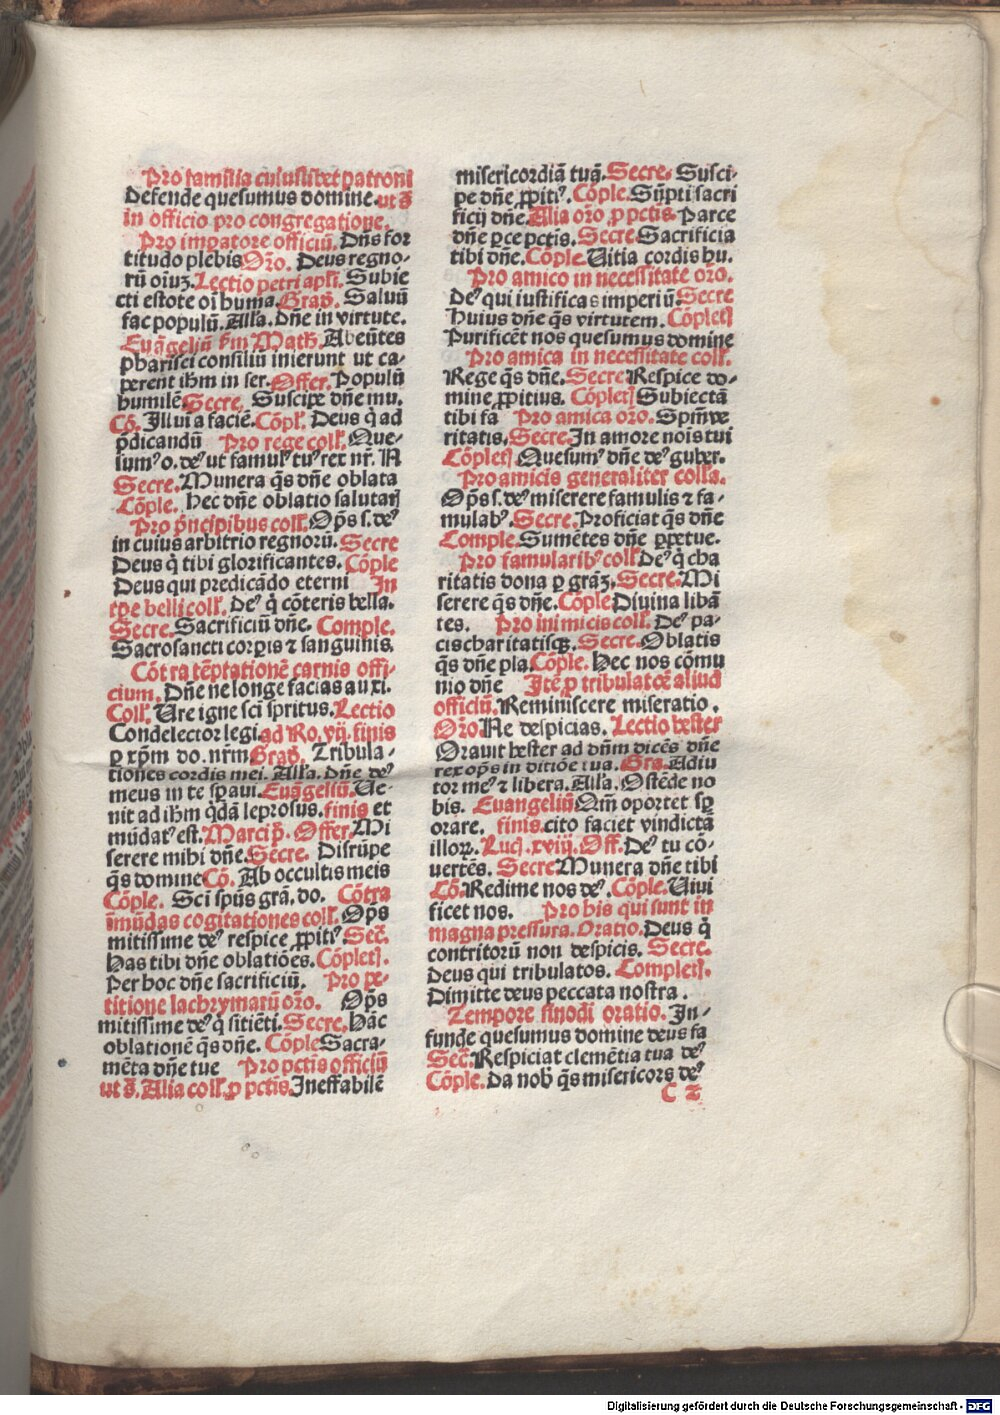 Pro familia cuiuslibet patroni
Defende quesumus domine. ut s̄
in officio pro congregatione.
Pro impatore officiū. Dñs for
titudo plebis Or̄o. Deus regno-
rū oīuꝫ. Lectio petri apl̄i. Subie
cti estote oī huma. Grad̄. Saluū
fac populū. Alla. Dñe in virtute.
Euāgeliū s̄m Math̄. Abeūtes
pharisei consiliū inierunt ut ca-
perent ih̄m in ser. Offer. Populū
humilē. Secre. Suscipe dñe mu.
Cō. Illui a faciē. Cōpl̄. Deus q̄ ad
p̄dicandū Pro rege coll̄. Que-
sumꝰ o. deꝰ ut famulꝰ tuꝰ rex nr̄. N
Secre. Munera q̄s dñe oblata
Cōple. hec dñe oblatio salutarꝭ
Pro p̄ncipibus coll̄. Op̄s s. deꝰ
in cuius arbitrio regnorū. Secre
Deus q̄ tibi glorificantes. Cōple
Deus qui predicādo eterni In
tp̄e belli coll̄. Deꝰ q̄ cōteris bella.
Secre. Sacrificiū dñe. Comple.
Sacrosancti corpis ⁊ sanguinis.
Cōtra tēptationē carnis offi-
cium. Dñe ne longe facias auxi.
Coll̄. Ure igne sci spritus. Lectio
Condelector legi. ad Ro. vij. finis
ꝑ xp̄m do. nr̄m Grad̄. Tribula-
tiones cordis mei. Alla. Dñe deꝰ
meus in te spaui. Euāgeliū. Ue-
nit ad ih̄m q̄dā leprosus. finis et
mūdatꝰ est. Marci p̄. Offer. Mi
serere mihi dñe. Secre. Disrūpe
q̄s domine Cō. Ab occultis meis
Cōple. Sci spūs grā. do. Cōtra
īmūdas cogitationes coll̄. Op̄s
mitissime deꝰ respice ꝓpitiꝰ Sec̄.
has tibi dñe oblatiōes. Cōpletꝭ.
Per hoc dñe sacrificiū. Pro pe-
titione lachrymarū or̄o. Op̄s
mitissime deꝰ q̄ sitiēti. Secre. Hāc
oblationē q̄s dñe. Cōple Sacra-
mēta dñe tue Pro pctis̄ officiū
ut s̄. Alia coll̄. ꝓ pctis̄. Ineffabilē
misericordiā tuā. Secre. Susci-
pe dñe ꝓpitiꝰ. Cōple. Sūpti sacri
ficij dñe. Alia or̄o ꝓ pctis̄. Parce
dñe ꝑce pctis̄. Secre Sacrificia
tibi dñe. Cōple. Uitia cordis hu.
Pro amico in necessitate or̄o.
Deꝰ qui iustificas imperiū. Secre
Huius dñe q̄s virtutem. Cōpletꝭ
Purificēt nos quesumus domine
Pro amica in necessitate coll̄.
Rege q̄s dñe. Secre Respice do-
mine ꝓpitius. Cōpletꝭ Subiectā
tibi fa Pro amica or̄o. Spm̄ ve
ritatis. Secre. In amore nois tui
Cōpletꝭ Quesumꝰ dñe deꝰ guber.
Pro amicis generaliter colla.
Op̄s s. deꝰ miserere famulis ⁊ fa-
mulabꝰ. Secre. Proficiat q̄s dñe
Comple. Sumētes dñe ꝑpetue.
Pro famularibꝰ coll̄ Deꝰ q̄ cha
ritatis dona ꝑ grāꝫ. Secre. Mi
serere q̄s dñe. Cōple Diuina libā
tes. Pro inimicis coll̄. Deꝰ pa-
cis charitatisqꝫ. Secre. Oblatis
q̄s dñe pla. Cōple. Hec nos cōmu
nio dñe Itē ꝓ tribulatōe aliud
officiū. Reminiscere miseratio.
Or̄o. Ne despicias. Lectio hester
Orauit hester ad dñm dicēs dñe
rex op̄s in ditiōe tua. Gra. Adiu
tor meꝰ ⁊ libera. Alla. Ostēde no
bis. Euangeliū Qm̄ oportet sp̄
orare. finis. cito faciet vindictā
illoꝝ. Lucꝭ. xviij. Off. Deꝰ tu cō-
uertēs. Secre Munera dñe tibi
Cō. Redime nos deꝰ. Cōple. Uiui
ficet nos. Pro his qui sunt in
magna pressura. Oratio. Deus q̄
contritorū non despicis. Secre.
Deus qui tribulatos. Completꝭ.
Dimitte deus peccata nostra.
Tempore sinodi oratio. In-
funde quesumus domine deus fa
Sec̄. Respiciat clemētia tua deꝰ
Cōple. Da nobꝭ q̄s misericors deꝰ
C 2
Digitalisierung gefördert durch die Deutsche Forschungsgemeinschaft - DFG